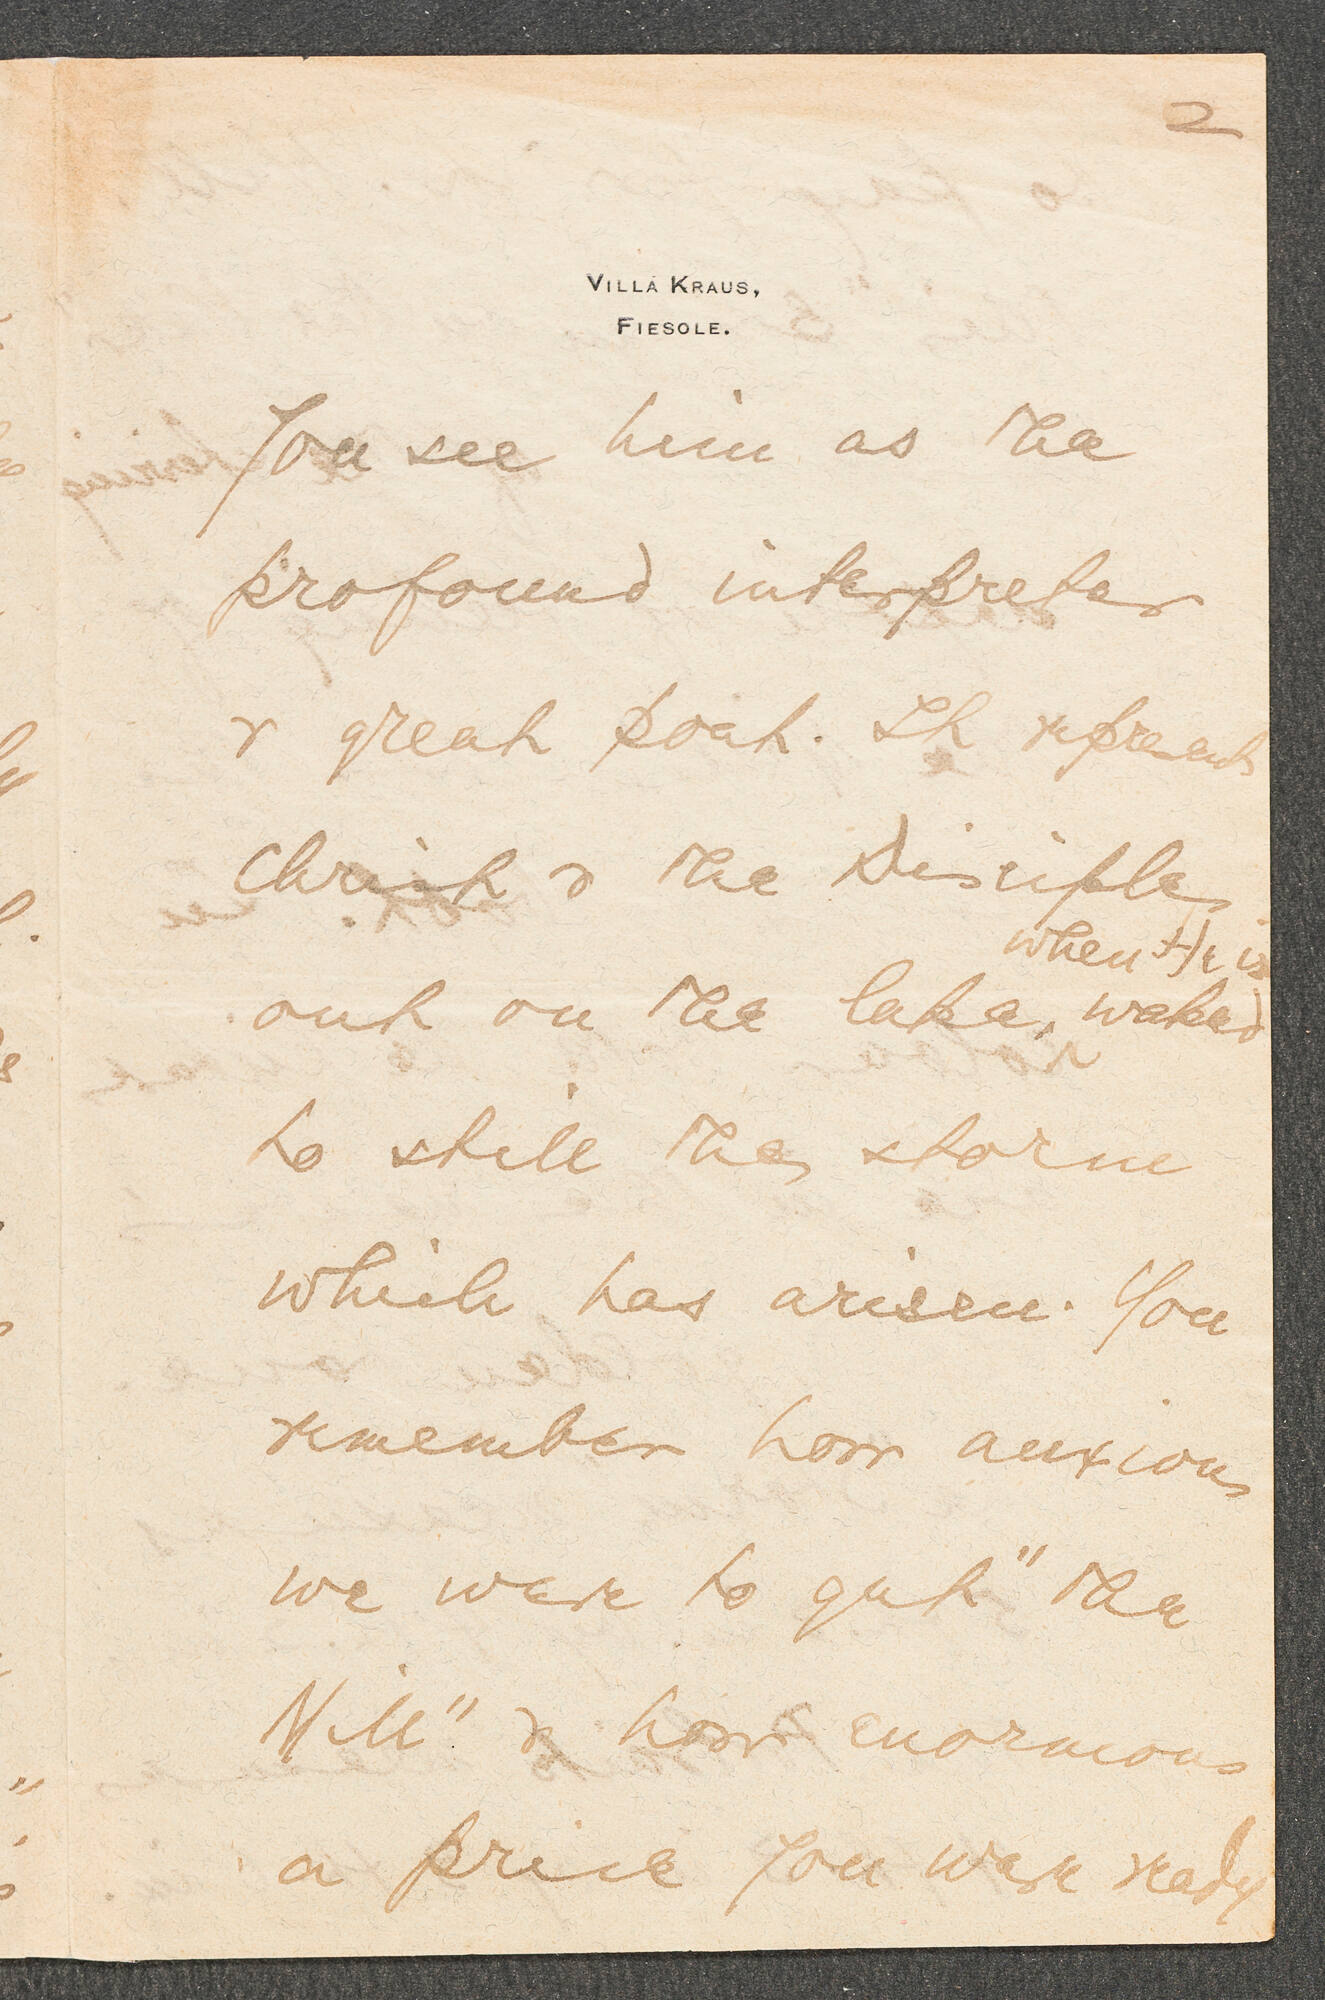 2
VILLA KRAUS,
FIESOLE.
You see him as the
profound interpreter
& great poet. It represents
Christ & the Disciples
when He is
out on the lake, & waked
to still the storm
which has arisen. You
remember how anxious
we were to get "the
Mill" & how enormous
a price you were ready